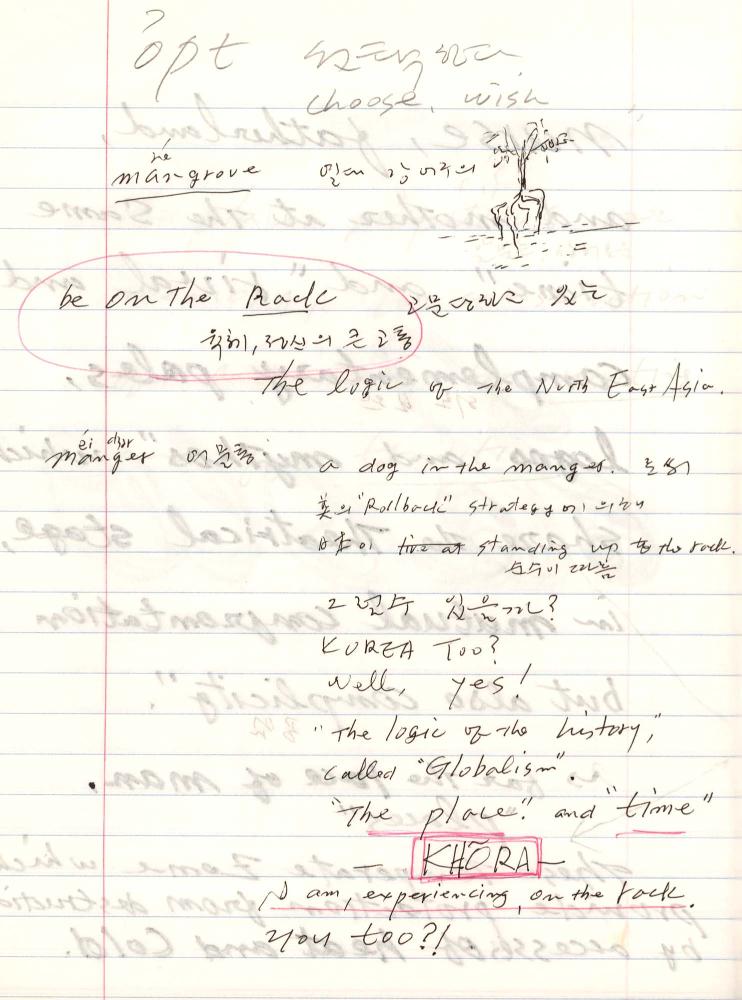 ŏpt 선택한다
choose, wish
né
mángrove 열대 강어구의
be on the Rack 고문당하고 있는
육체, 정신의 큰 고통
The logic of the North East Asia.
éi dʒər
mánger 여물통.
a dog in the manger.
美의 "Rollback" strategy에 의해
日本이 live at standing up to the rack.
순수이 따름
그럴수 있을까?
KOREA Too?
Well, yes!
"The logic of the history,"
called "Globalism".
"The place." and "time"
— KHŌRA —
I am, experiencing, on the rack.
you too?!